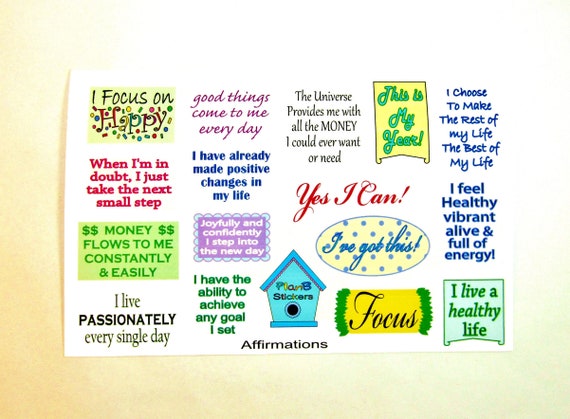 I Focus on
Happy
good things
come to me
every day
The Universe
Provides me with
all the MONEY
I could ever want
or need
This is
My
Year!
I Choose
To Make
The Rest of
my Life
The Best of
My Life
When I'm in
doubt, I just
take the next
small step
I have already
made positive
changes in
my life
Yes I Can!
I feel
Healthy
vibrant
alive &
full of
energy!
$$ MONEY $$
FLOWS TO ME
CONSTANTLY
& EASILY
Joyfully and
confidently
I step into
the new day
I've got this!
I live
PASSIONATELY
every single day
I have the
ability to
achieve
any goal
I set
PlanB
Stickers
Focus
I live a
healthy
life
Affirmations